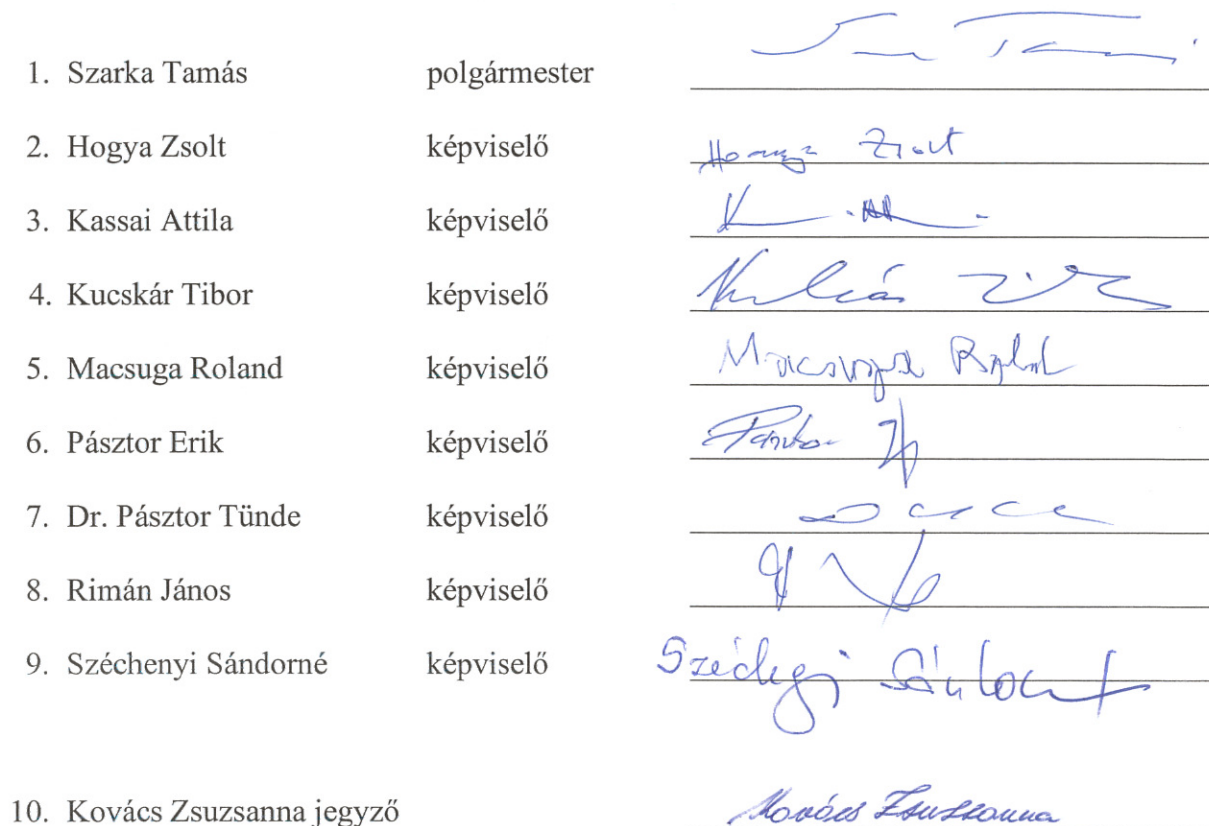 1. Szarka Tamás polgármester
2. Hogya Zsolt képviselő Zsolt
3. Kassai Attila képviselő
4. Kucskár Tibor képviselő
5. Macsuga Roland képviselő Macsuga Roland
6. Pásztor Erik képviselő
7. Dr. Pásztor Tünde képviselő
8. Rimán János képviselő
9. Széchenyi Sándorné képviselő
10. Kovács Zsuzsanna jegyző Kovács Zsuzsanna